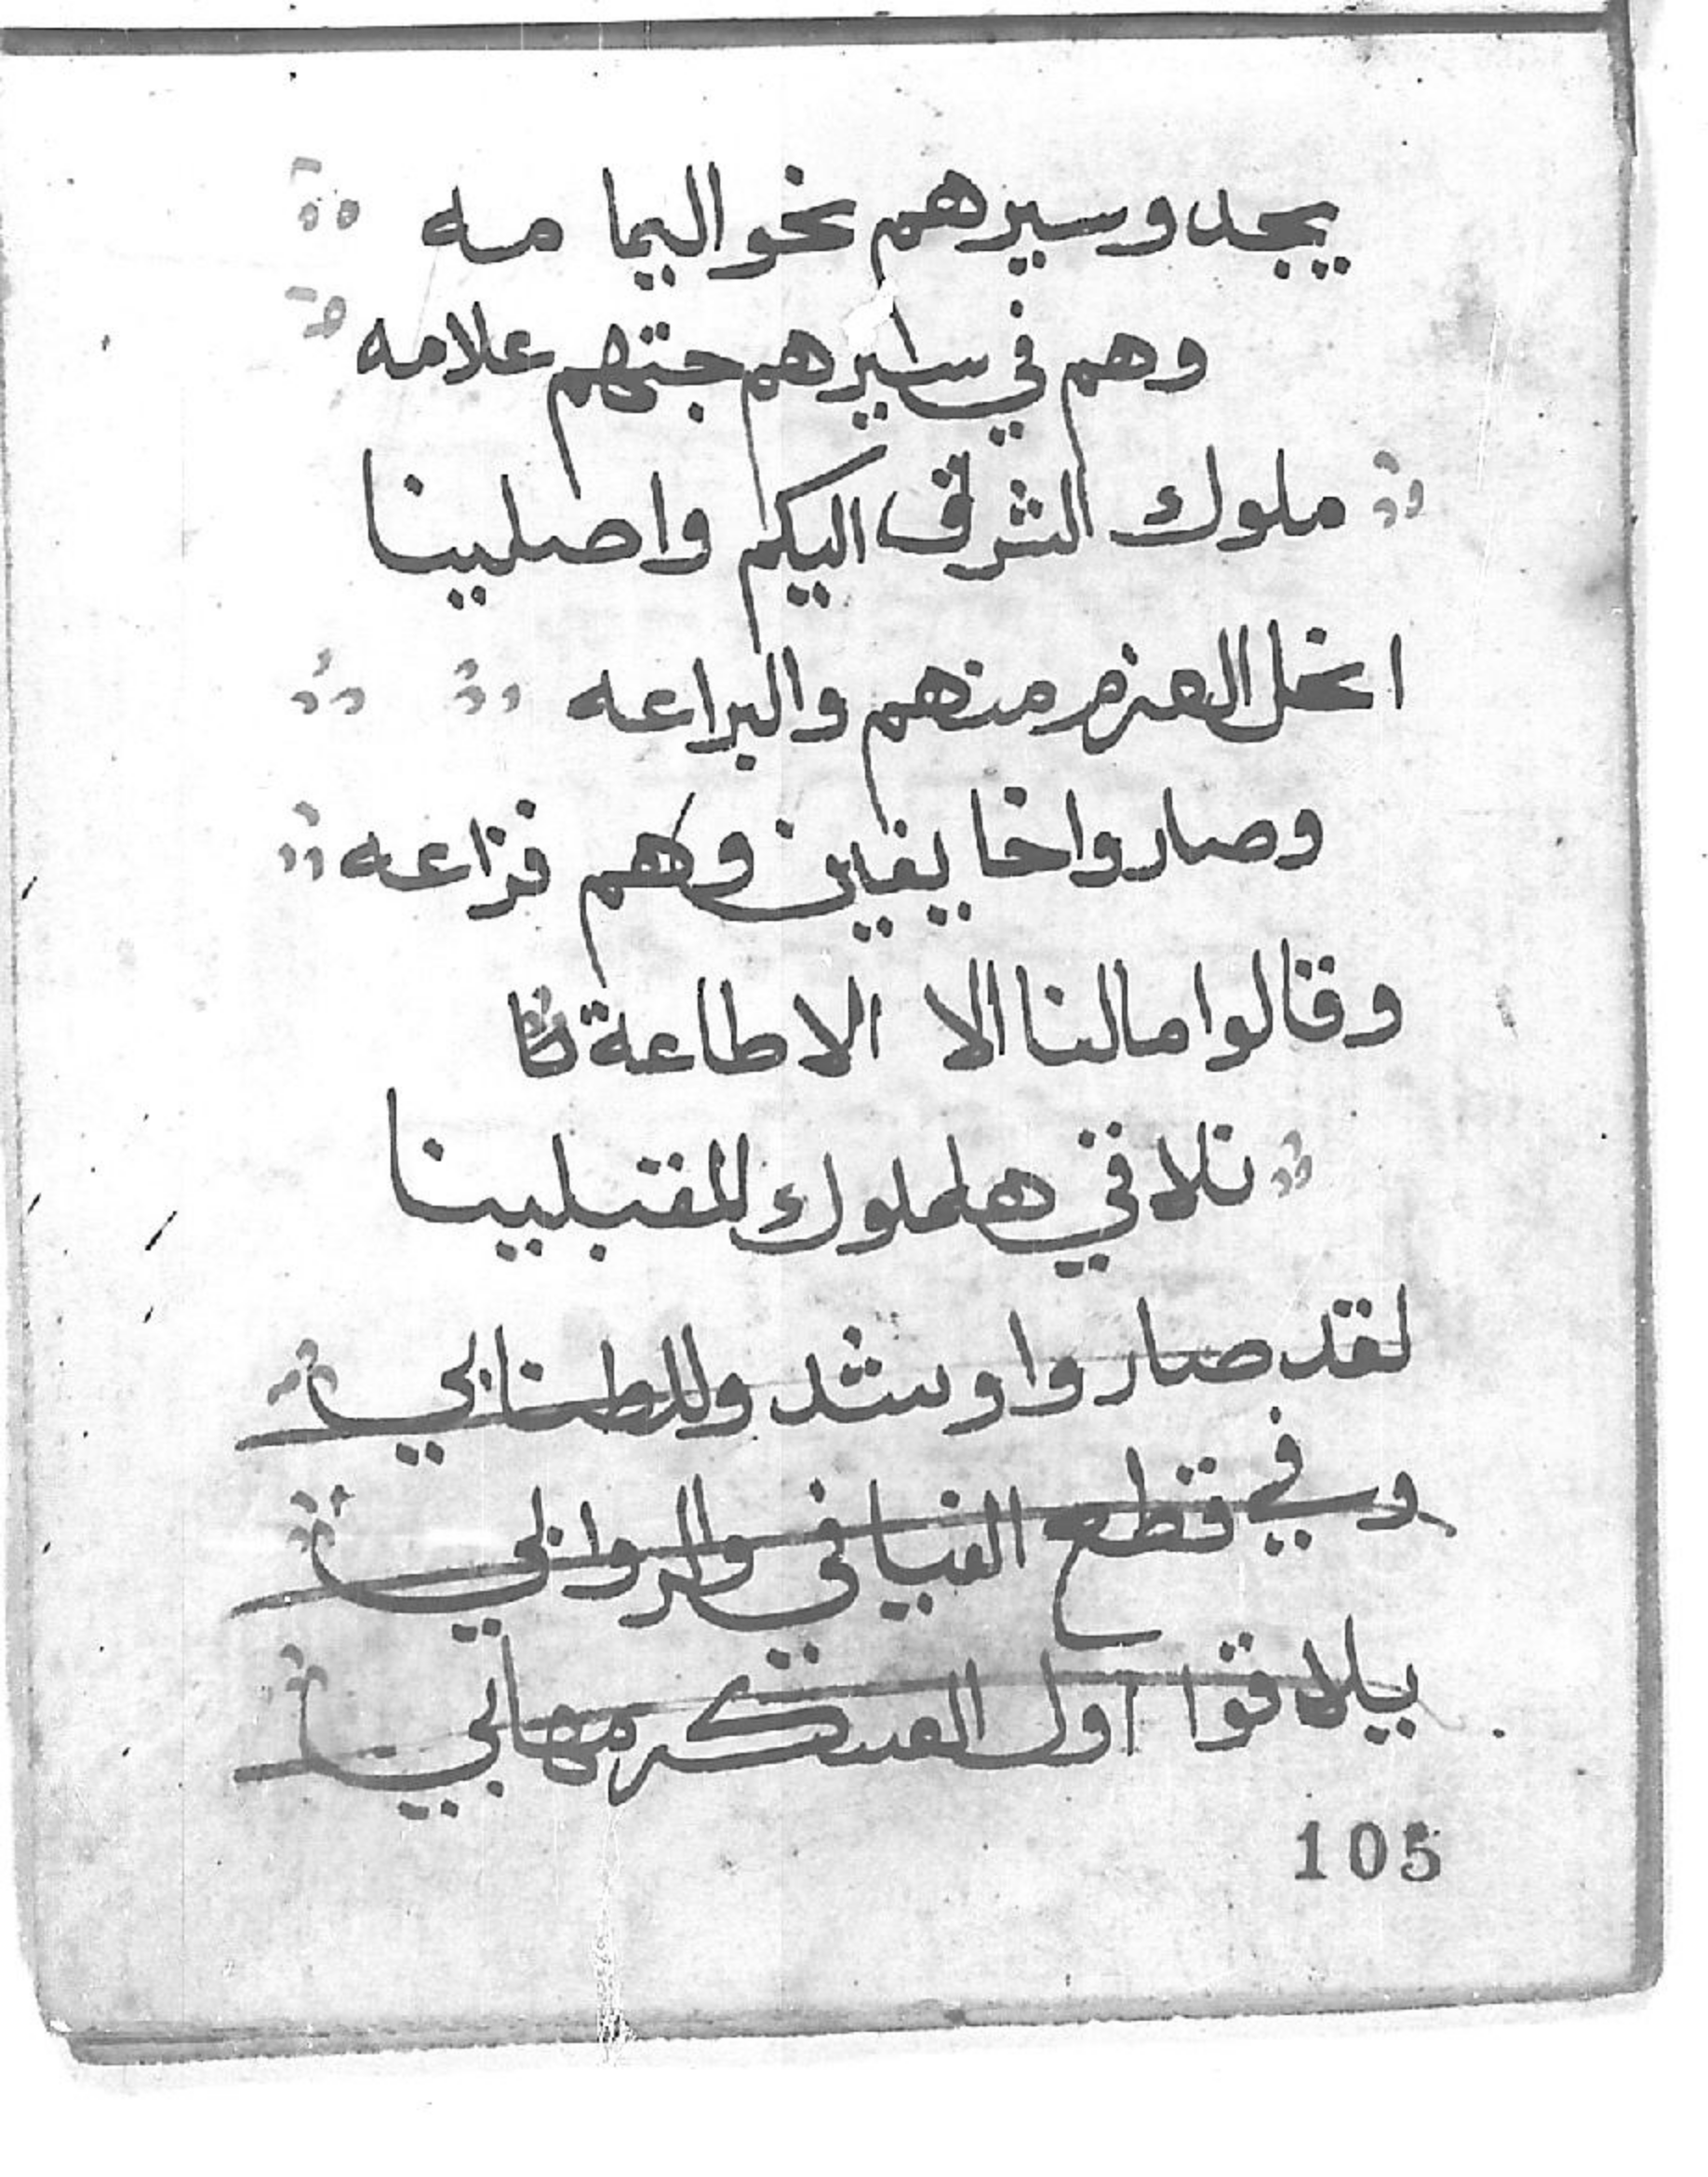 يجدو سيرهم نحو اليما مه
وهم في سايرهم جتهم علامه
ملوك الشرق اليكم واصليينا
انحل العزم منهم والبراعه
وصاروا خايفين وهم فزاعه
وقالوا مالنا الا الاطاعة
نلاقي هلملوك المقتبليينا
لقد صاروا وشد وللطنابي
وفي قطع الفيافي والروابي
يلاقوا اول العسكر مهابي
105